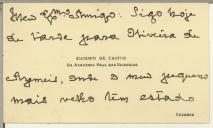 Meu Ex.mo Amigo: Sigo hoje
de tarde para Oliveira de
EUGENIO DE CASTRO
DA ACADEMIA REAL DAS SCIENCIAS
Azemeis, onde o meu pequeno
mais velho tem estado
COIMBRA